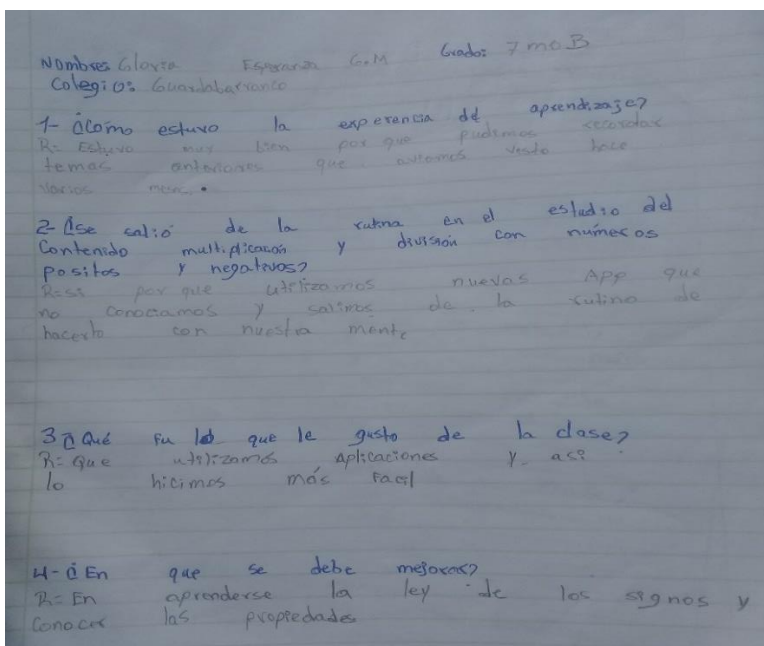 Nombres Gloria Esperanza G.M Grado: 7 mo B
Colegio: Guardabarranco
1- ¿Como estuvo la experencia de aprendizaje?
R= Estuvo muy bien por que pudimos recordar
temas anteriores que aviamos visto hace
varios mese.
2- ¿se salió de la rutina en el estudio del
Contenido multiplicacón y división con números
positos y negativos?
R= si por que utilizamos nuevas App que
no conociamos y salimos de la rutina de
hacerlo con nuestra mente
3 ¿Qué fu lo que le gusto de la clase?
R= Que utilizamos Aplicaciones y asi
lo hicimos más facil
4- ¿En que se debe mejorar?
R= En aprenderse la ley de los signos y
Conocer las propiedades